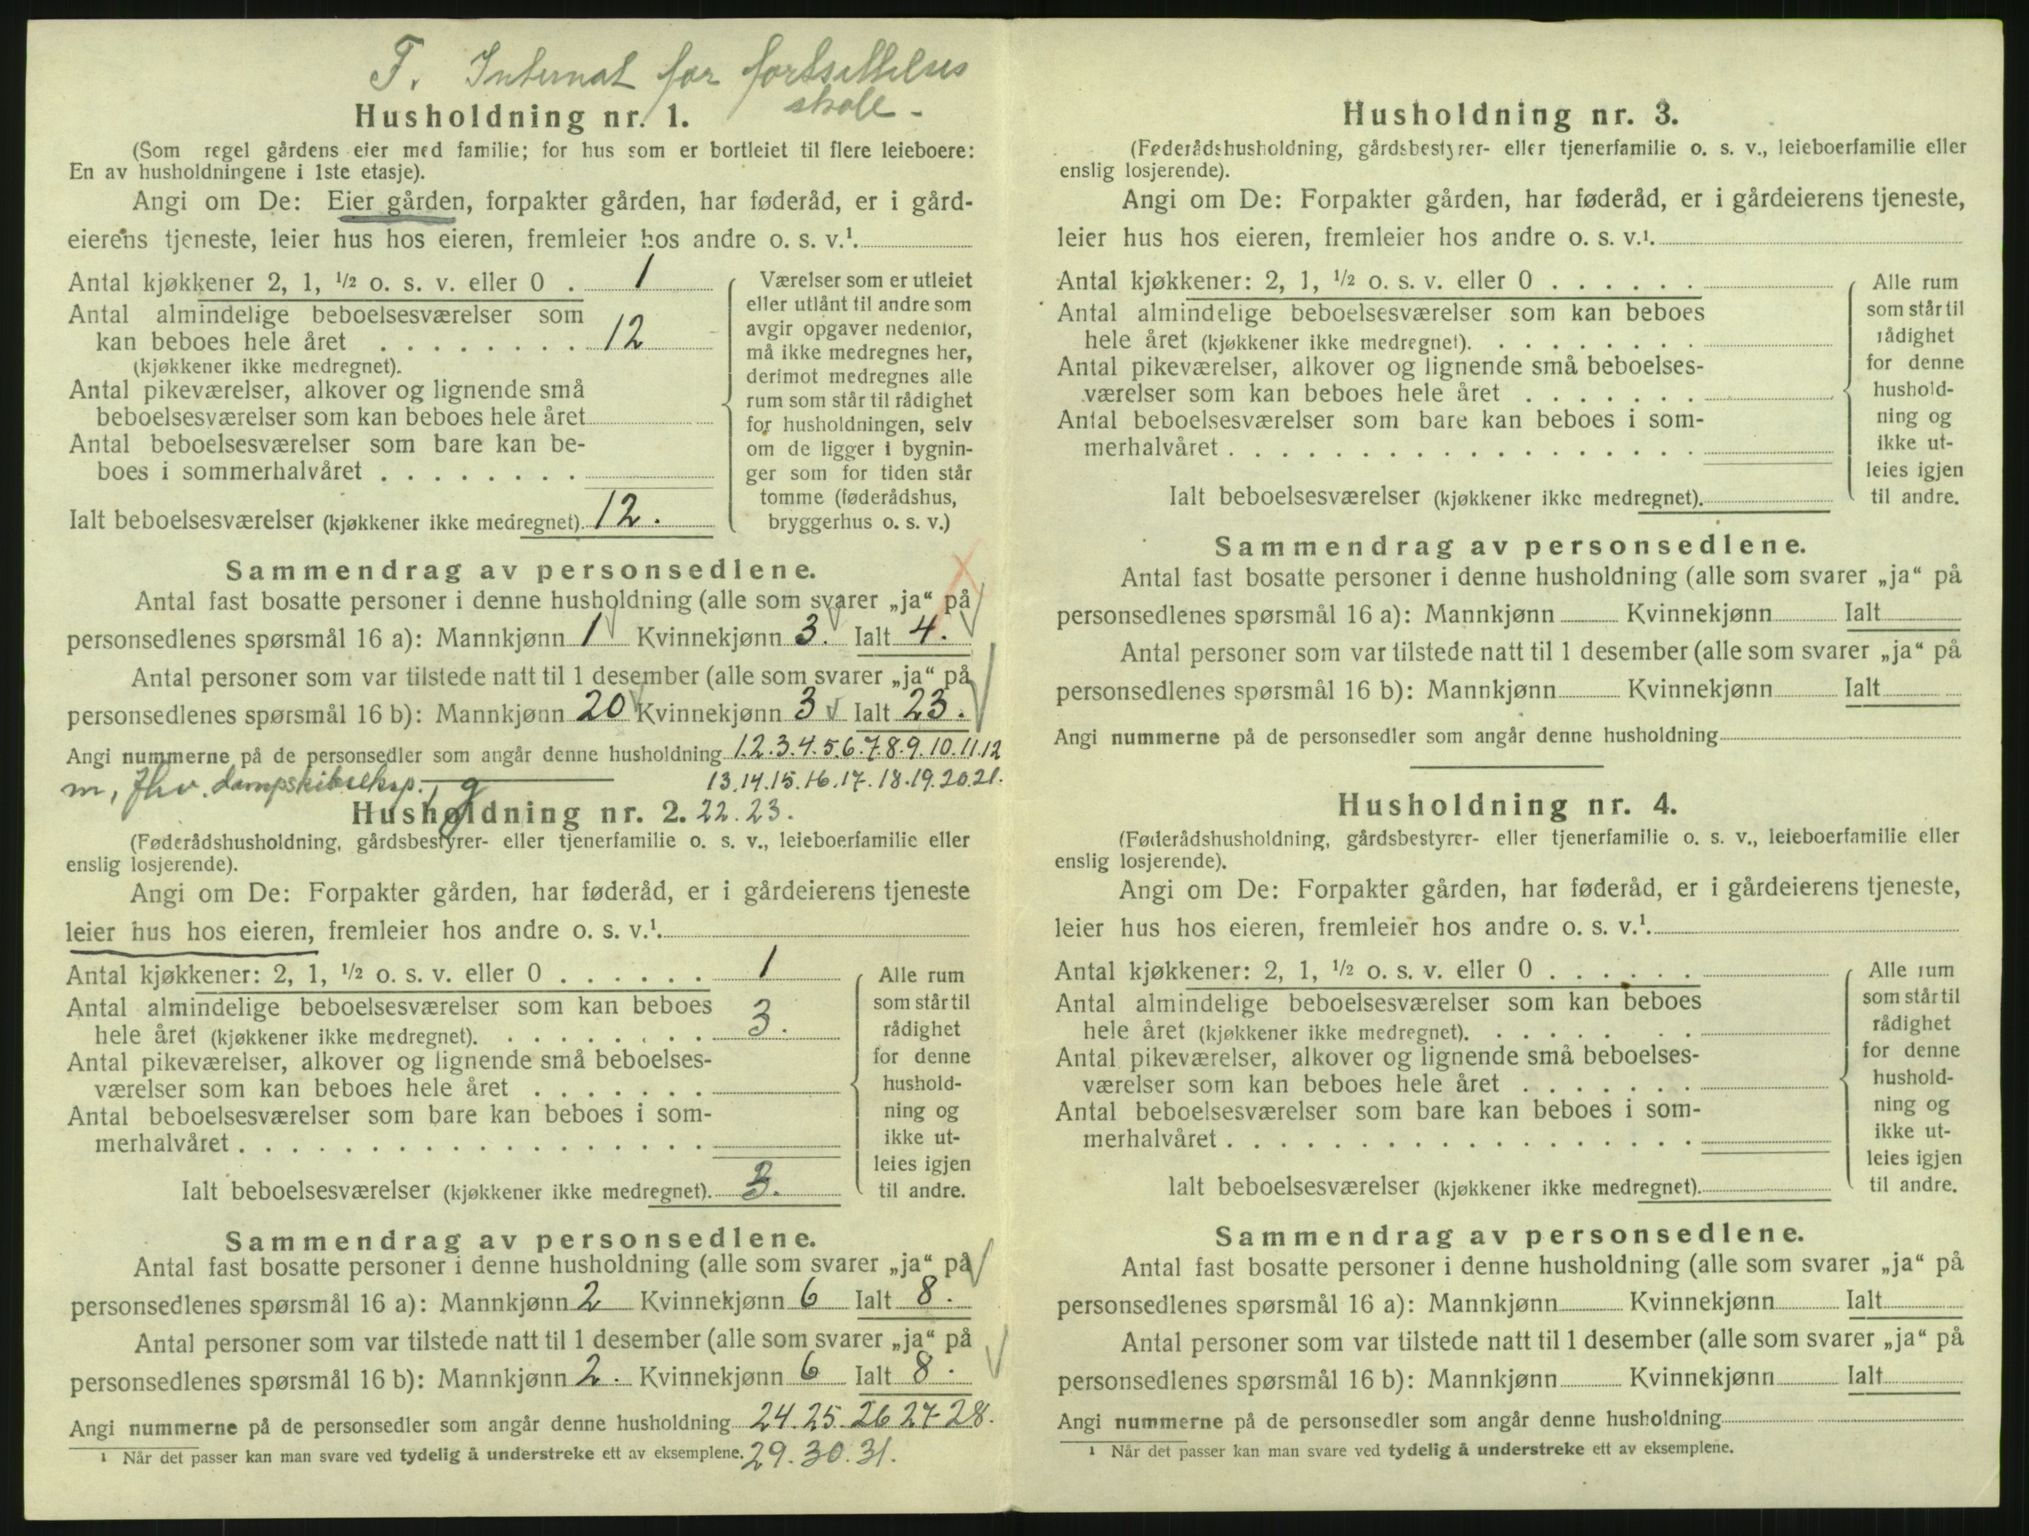 F. Internat for fortsettelses
skole -
Husholdning nr. 1.
(Som regel gårdens eier med familie; for hus som er bortleiet til flere leieboere:
En av husholdningene i 1ste etasje).
Angi om De: Eier gården, forpakter gården, har føderåd, er i gård-
eierens tjeneste, leier hus hos eieren, fremleier hos andre o. s. v.¹.
Antal kjøkkener 2, 1, ½ o. s. v. eller 0 . 1
Antal almindelige beboelsesværelser som
kan beboes hele året . . . . . . . . . 12
(kjøkkener ikke medregnet).
Antal pikeværelser, alkover og lignende små
beboelsesværelser som kan beboes hele året
Antal beboelsesværelser som bare kan be-
boes i sommerhalvåret . . . . . . . .
Ialt beboelsesværelser (kjøkkener ikke medregnet). 12.
Værelser som er utleiet
eller utlånt til andre som
avgir opgaver nedenfor,
må ikke medregnes her,
derimot medregnes alle
rum som står til rådighet
for husholdningen, selv
om de ligger i bygnin-
ger som for tiden står
tomme (føderådshus,
bryggerhus o. s. v.)
Sammendrag av personsedlene.
Antal fast bosatte personer i denne husholdning (alle som svarer „ja“ på
personsedlenes spørsmål 16 a): Mannkjønn 1 Kvinnekjønn 3. Ialt 4.
Antal personer som var tilstede natt til 1 desember (alle som svarer „ja“ på
personsedlenes spørsmål 16 b): Mannkjønn 20 Kvinnekjønn 3 Ialt 23.
Angi nummerne på de personsedler som angår denne husholdning 1.2.3.4.5.6.7.8.9.10.11.12
13.14.15.16.17.18.19.20.21.
m, fhv. dampskibseksp., g
Husholdning nr. 2. 22.23.
(Føderådshusholdning, gårdsbestyrer- eller tjenerfamilie o. s. v., leieboerfamilie eller
enslig losjerende).
Angi om De: Forpakter gården, har føderåd, er i gårdeierens tjeneste
leier hus hos eieren, fremleier hos andre o. s. v.¹.
Antal kjøkkener: 2, 1, ½ o. s. v. eller 0 . . . . . . 1
Antal almindelige beboelsesværelser som kan beboes
hele året (kjøkkener ikke medregnet). . . . . . . . . 3.
Antal pikeværelser, alkover og lignende små beboelses-
værelser som kan beboes hele året . . . . . . .
Antal beboelsesværelser som bare kan beboes i som-
merhalvåret . . . . . . . . . . . . . . . . . .
Ialt beboelsesværelser (kjøkkener ikke medregnet). 3.
Alle rum
som står til
rådighet
for denne
hushold-
ning og
ikke ut-
leies igjen
til andre.
Sammendrag av personsedlene.
Antal fast bosatte personer i denne husholdning (alle som svarer „ja“ på
personsedlenes spørsmål 16 a): Mannkjønn 2 Kvinnekjønn 6 Ialt 8.
Antal personer som var tilstede natt til 1 desember (alle som svarer „ja“ på
personsedlenes spørsmål 16 b): Mannkjønn 2. Kvinnekjønn 6 Ialt 8.
Angi nummerne på de personsedler som angår denne husholdning 24.25.26 27.28.
¹ Når det passer kan man svare ved tydelig å understreke ett av eksemplene. 29.30.31.
Husholdning nr. 3.
(Føderådshusholdning, gårdsbestyrer- eller tjenerfamilie o. s. v., leieboerfamilie eller
enslig losjerende).
Angi om De: Forpakter gården, har føderåd, er i gårdeierens tjeneste,
leier hus hos eieren, fremleier hos andre o. s. v.¹.
Antal kjøkkener: 2, 1, ½ o. s. v. eller 0 . . . . . .
Antal almindelige beboelsesværelser som kan beboes
hele året (kjøkkener ikke medregnet). . . . . . . . .
Antal pikeværelser, alkover og lignende små beboelses-
værelser som kan beboes hele året . . . . . . .
Antal beboelsesværelser som bare kan beboes i som-
merhalvåret . . . . . . . . . . . . . . . . . .
Ialt beboelsesværelser (kjøkkener ikke medregnet).
Alle rum
som står til
rådighet
for denne
hushold-
ning og
ikke ut-
leies igjen
til andre.
Sammendrag av personsedlene.
Antal fast bosatte personer i denne husholdning (alle som svarer „ja“ på
personsedlenes spørsmål 16 a): Mannkjønn Kvinnekjønn Ialt
Antal personer som var tilstede natt til 1 desember (alle som svarer „ja“ på
personsedlenes spørsmål 16 b): Mannkjønn Kvinnekjønn Ialt
Angi nummerne på de personsedler som angår denne husholdning
Husholdning nr. 4.
(Føderådshusholdning, gårdsbestyrer- eller tjenerfamilie o. s. v., leieboerfamilie eller
enslig losjerende).
Angi om De: Forpakter gården, har føderåd, er i gårdeierens tjeneste,
leier hus hos eieren, fremleier hos andre o. s. v.¹.
Antal kjøkkener: 2, 1, ½ o. s. v. eller 0 . . . . . .
Antal almindelige beboelsesværelser som kan beboes
hele året (kjøkkener ikke medregnet). . . . . . . . .
Antal pikeværelser, alkover og lignende små beboelses-
værelser som kan beboes hele året . . . . . . .
Antal beboelsesværelser som bare kan beboes i som-
merhalvåret . . . . . . . . . . . . . . . . . .
Ialt beboelsesværelser (kjøkkener ikke medregnet).
Alle rum
som står til
rådighet
for denne
hushold-
ning og
ikke ut-
leies igjen
til andre.
Sammendrag av personsedlene.
Antal fast bosatte personer i denne husholdning (alle som svarer „ja“ på
personsedlenes spørsmål 16 a): Mannkjønn Kvinnekjønn Ialt
Antal personer som var tilstede natt til 1 desember (alle som svarer „ja“ på
personsedlenes spørsmål 16 b): Mannkjønn Kvinnekjønn Ialt
Angi nummerne på de personsedler som angår denne husholdning
¹ Når det passer kan man svare ved tydelig å understreke ett av eksemplene.